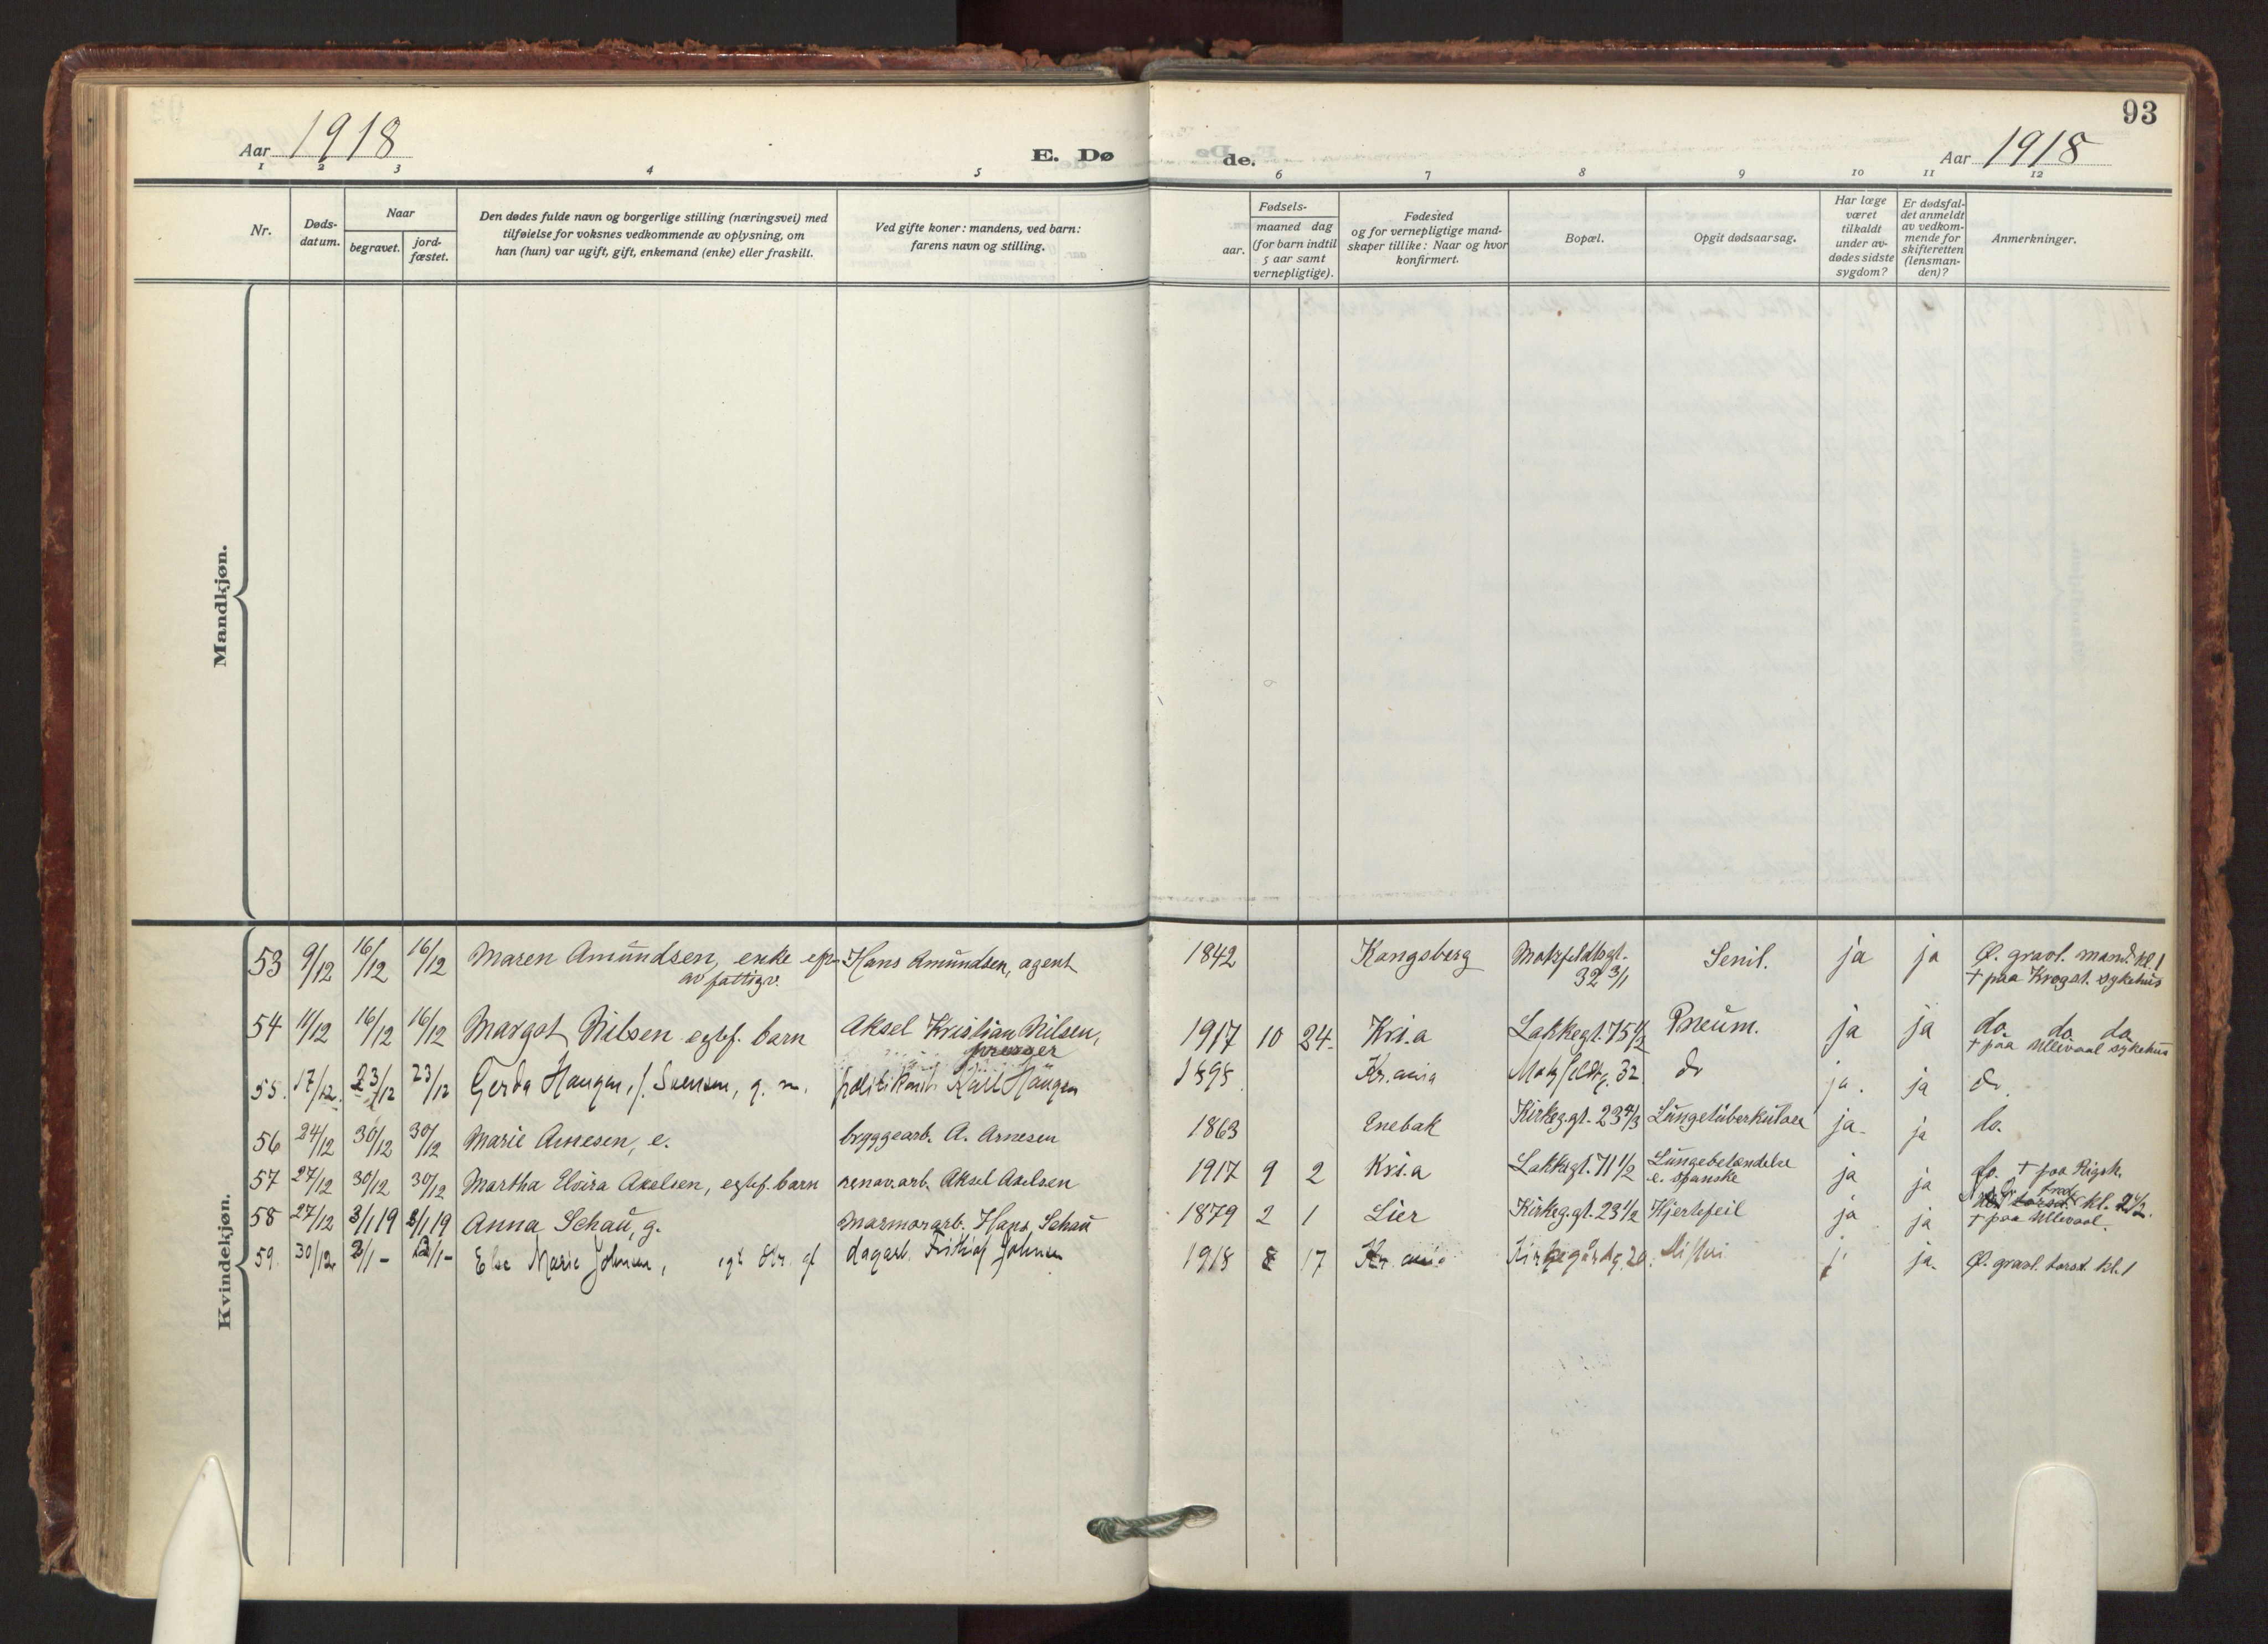 93
Aar 1918
E. Dø
de.
Aar 1918
1 2 3 4 5 6 7 8 9 10 11 12
Nr.
Døds-
datum.
Naar
begravet.
jord-
fæstet.
Den dødes fulde navn og borgerlige stilling (næringsvei) med
tilføielse for voksnes vedkommende av oplysning, om
han (hun) var ugift, gift, enkemand (enke) eller fraskilt.
Ved gifte koner: mandens, ved barn:
farens navn og stilling.
Fødsels-
aar.
maaned dag
(for barn indtil
5 aar samt
vernepligtige).
Fødested
og for vernepligtige mand-
skaper tillike: Naar og hvor
konfirmert.
Bopæl.
Opgit dødsaarsag.
Har læge
været
tilkaldt
under av-
dødes sidste
sygdom?
Er dødsfal-
det anmeldt
av vedkom-
mende for
skifteretten
(lensman-
den)?
Anmerkninger.
Mandkjøn.
Kvindekjøn.
53 9/12 16/12 16/12 Maren Amundsen, enke eft. Hans Amundsen, agent 1842 Kongsberg Motzfeldtsgt. Senil. ja ja Ø. gravl. mand. kl. 1
av fattigv. 32 3/1 † paa Krogst. sykehus
54 11/12 16/12 16/12 Margot Nilsen egtef. barn Aksel Kristian Nilsen, 1917 10 24 Kri.a Lakkegt. 75 4/2 Pneum. ja ja do. do. do.
presser † paa Ullevaal sykehus
55. 17/12 23/12 23/12 Gerda Haugen, f. Svensen, g. m. politikonst. Karl Haugen 1898 Kr.ania Motzfeldtg. 32 do ja. ja do.
56 24/12 30/12 30/12 Marie Arnesen, e. bryggearb. A. Arnesen 1863 Enebak Kirkeg.gt. 23 4/3 Lungetuberkulose ja ja do.
57 27/12 30/12 30/12 Martha Elvira Axelsen, egtef. barn renov.arb. Aksel Axelsen 1917 9 2 Kri.a Lakkegt. 71 1/2 Lungebetændelse ja ja do. † paa Rigsh.
e. spanske
58 27/12 3/1 19 3/1 19 Anna Schau, g. marmorarb. Hans Schau 1879 2 1 Lier Kirkeg.gt. 23 1/2 Hjertefeil ja ja fred. kl. 2 1/2.
† paa Ullevaal.
59. 30/12 2/1 - 2/1 - Else Marie Johnsen, egt. br. af dagarb. Fritjof Johnsen 1918 8 17 Kr.ania Kirkegårdsg. 20. ja. Ø. gravl. torsd. kl. 1